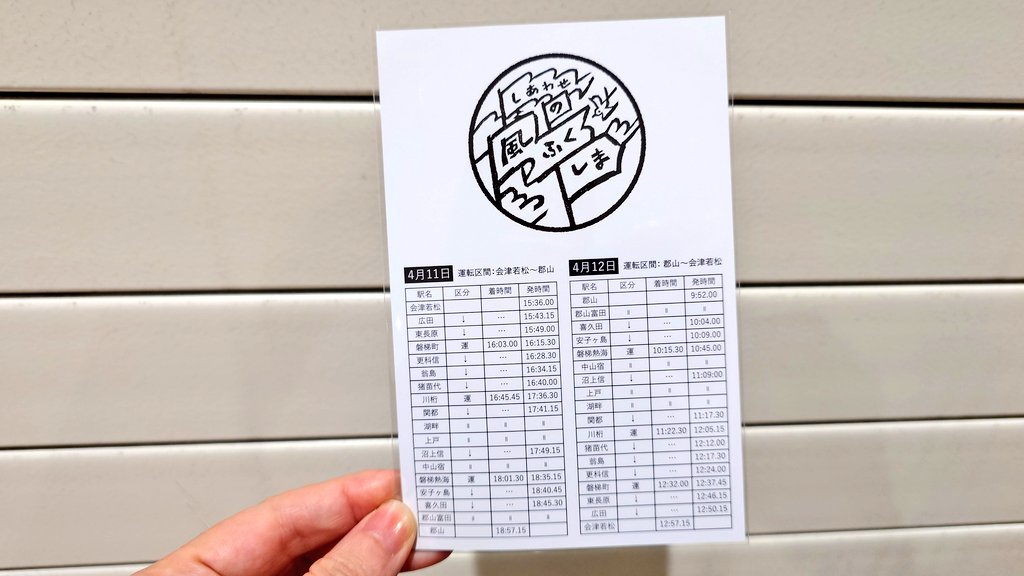 しあわせ
の
風
ふくし
しま
4月11日 運転区間：会津若松～郡山
駅名 区分 着時間 発時間
会津若松 15:36.00
広田 ↓ … 15:43.15
東長原 ↓ … 15:49.00
磐梯町 運 16:03.00 16:15.30
更科信 ↓ … 16:28.30
翁島 ↓ … 16:34.15
猪苗代 ↓ … 16:40.00
川桁 運 16:45.45 17:36.30
関都 ↓ … 17:41.15
湖畔 〃 〃 〃
上戸 〃 〃 〃
沼上信 ↓ … 17:49.15
中山宿 〃 〃 〃
磐梯熱海 運 18:01.30 18:35.15
安子ヶ島 ↓ … 18:40.45
喜久田 ↓ … 18:45.30
郡山富田 〃 〃
郡山 18:57.15
4月12日 運転区間：郡山～会津若松
駅名 区分 着時間 発時間
郡山 9:52.00
郡山富田 〃 〃 〃
喜久田 ↓ … 10:04.00
安子ヶ島 ↓ … 10:09.00
磐梯熱海 運 10:15.30 10:45.00
中山宿 〃 〃 〃
沼上信 ↓ … 11:09:00
上戸 〃 〃 〃
湖畔 〃 〃 〃
関都 ↓ … 11:17.30
川桁 運 11:22.30 12:05.15
猪苗代 ↓ … 12:12.00
翁島 ↓ … 12:17.30
更科信 ↓ … 12:24.00
磐梯町 運 12:32.00 12:37.45
東長原 ↓ … 12:46.15
広田 ↓ … 12:50.15
会津若松 12:57.15